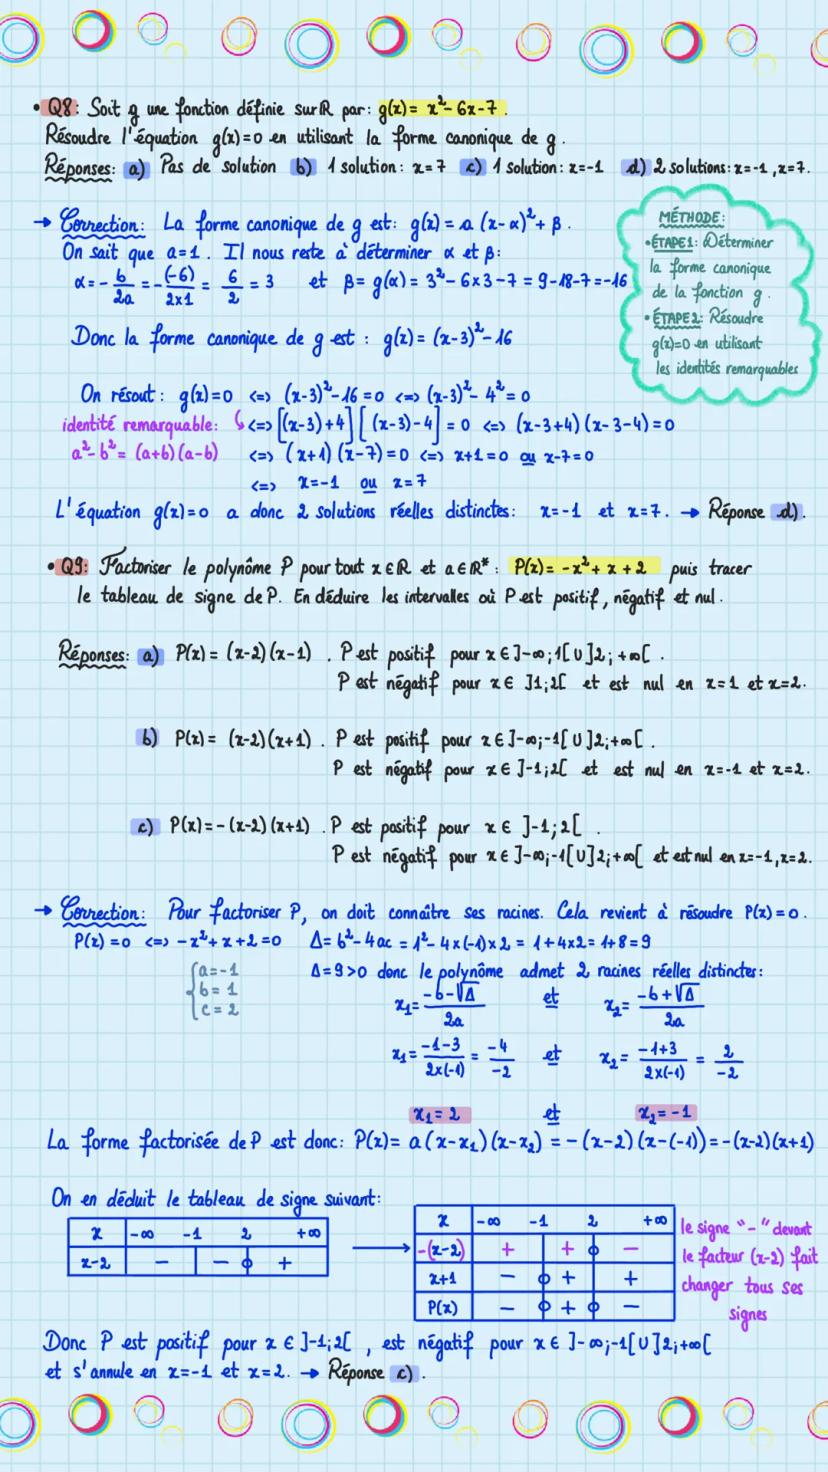 • Q8: Soit g une fonction définie sur ℝ par: g(x) = x²- 6x-7.
Résoudre l'équation g(x)=0 en utilisant la forme canonique de g.
Réponses: a) Pas de solution b) 1 solution: x=7 c) 1 solution: x=-1 d) 2 solutions: x=-1, x=7.
→ Correction: La forme canonique de g est: g(x) = a (x-α)²+ β.
On sait que a=1. Il nous reste à déterminer α et β:
α = - b/2a = - (-6)/2x1 = 6/2 = 3 et β = g(α) = 3²- 6x3-7 = 9-18-7=-16
Donc la forme canonique de g est : g(x) = (x-3)²-16
MÉTHODE:
• ÉTAPE1: Déterminer
la forme canonique
de la fonction g.
• ÉTAPE2: Résoudre
g(x)=0 en utilisant
les identités remarquables
On résout: g(x)=0 <=> (x-3)²-16=0 <=> (x-3)²- 4²=0
identité remarquable: <=> [(x-3)+4][(x-3)-4] = 0 <=> (x-3+4)(x-3-4)=0
a²-b²= (a+b)(a-b) <=> (x+1)(x-7)=0 <=> x+1=0 ou x-7=0
<=> x=-1 ou x=7
L'équation g(x)=0 a donc 2 solutions réelles distinctes: x=-1 et x=7. → Réponse d).
• Q9: Factoriser le polynôme P pour tout x∈ℝ et a∈ℝ*: P(x)= -x²+ x + 2 puis tracer
le tableau de signe de P. En déduire les intervalles où P est positif, négatif et nul.
Réponses: a) P(x) = (x-2)(x-1) . P est positif pour x∈]-∞;1[∪]2;+∞[ .
P est négatif pour x∈ ]1;2[ et est nul en x=1 et x=2.
b) P(x) = (x-2)(x+1) . P est positif pour x∈]-∞;-1[∪]2;+∞[ .
P est négatif pour x∈]-1;2[ et est nul en x=-1 et x=2.
c) P(x) = -(x-2)(x+1) . P est positif pour x∈ ]-1;2[ .
P est négatif pour x∈]-∞;-1[∪]2;+∞[ et est nul en x=-1, x=2.
→ Correction: Pour factoriser P, on doit connaître ses racines. Cela revient à résoudre P(x)=0.
P(x)=0 <=> -x²+x+2=0 Δ= b²-4ac = 1²- 4x(-1)x2 = 1+4x2= 1+8=9
{a=-1 Δ=9>0 donc le polynôme admet 2 racines réelles distinctes:
b= 1
c=2
x₁= -b-√Δ/2a et x₂= -b+√Δ/2a
x₁= -1-3/2x(-1) = -4/-2 et x₂= -1+3/2x(-1) = 2/-2
x₁= 2 et x₂= -1
La forme factorisée de P est donc: P(x)= a(x-x₁)(x-x₂) = -(x-2)(x-(-1))=-(x-2)(x+1)
On en déduit le tableau de signe suivant:
x -∞ -1 2 +∞
x-2 - - 0 +
x -∞ -1 2 +∞
-(x-2) + + 0 -
x+1 - 0 + +
P(x) - 0 + 0 -
le signe "-" devant
le facteur (x-2) fait
changer tous ses
signes
Donc P est positif pour x∈]-1;2[ , est négatif pour x∈]-∞;-1[∪]2;+∞[
et s'annule en x=-1 et x=2. → Réponse c).